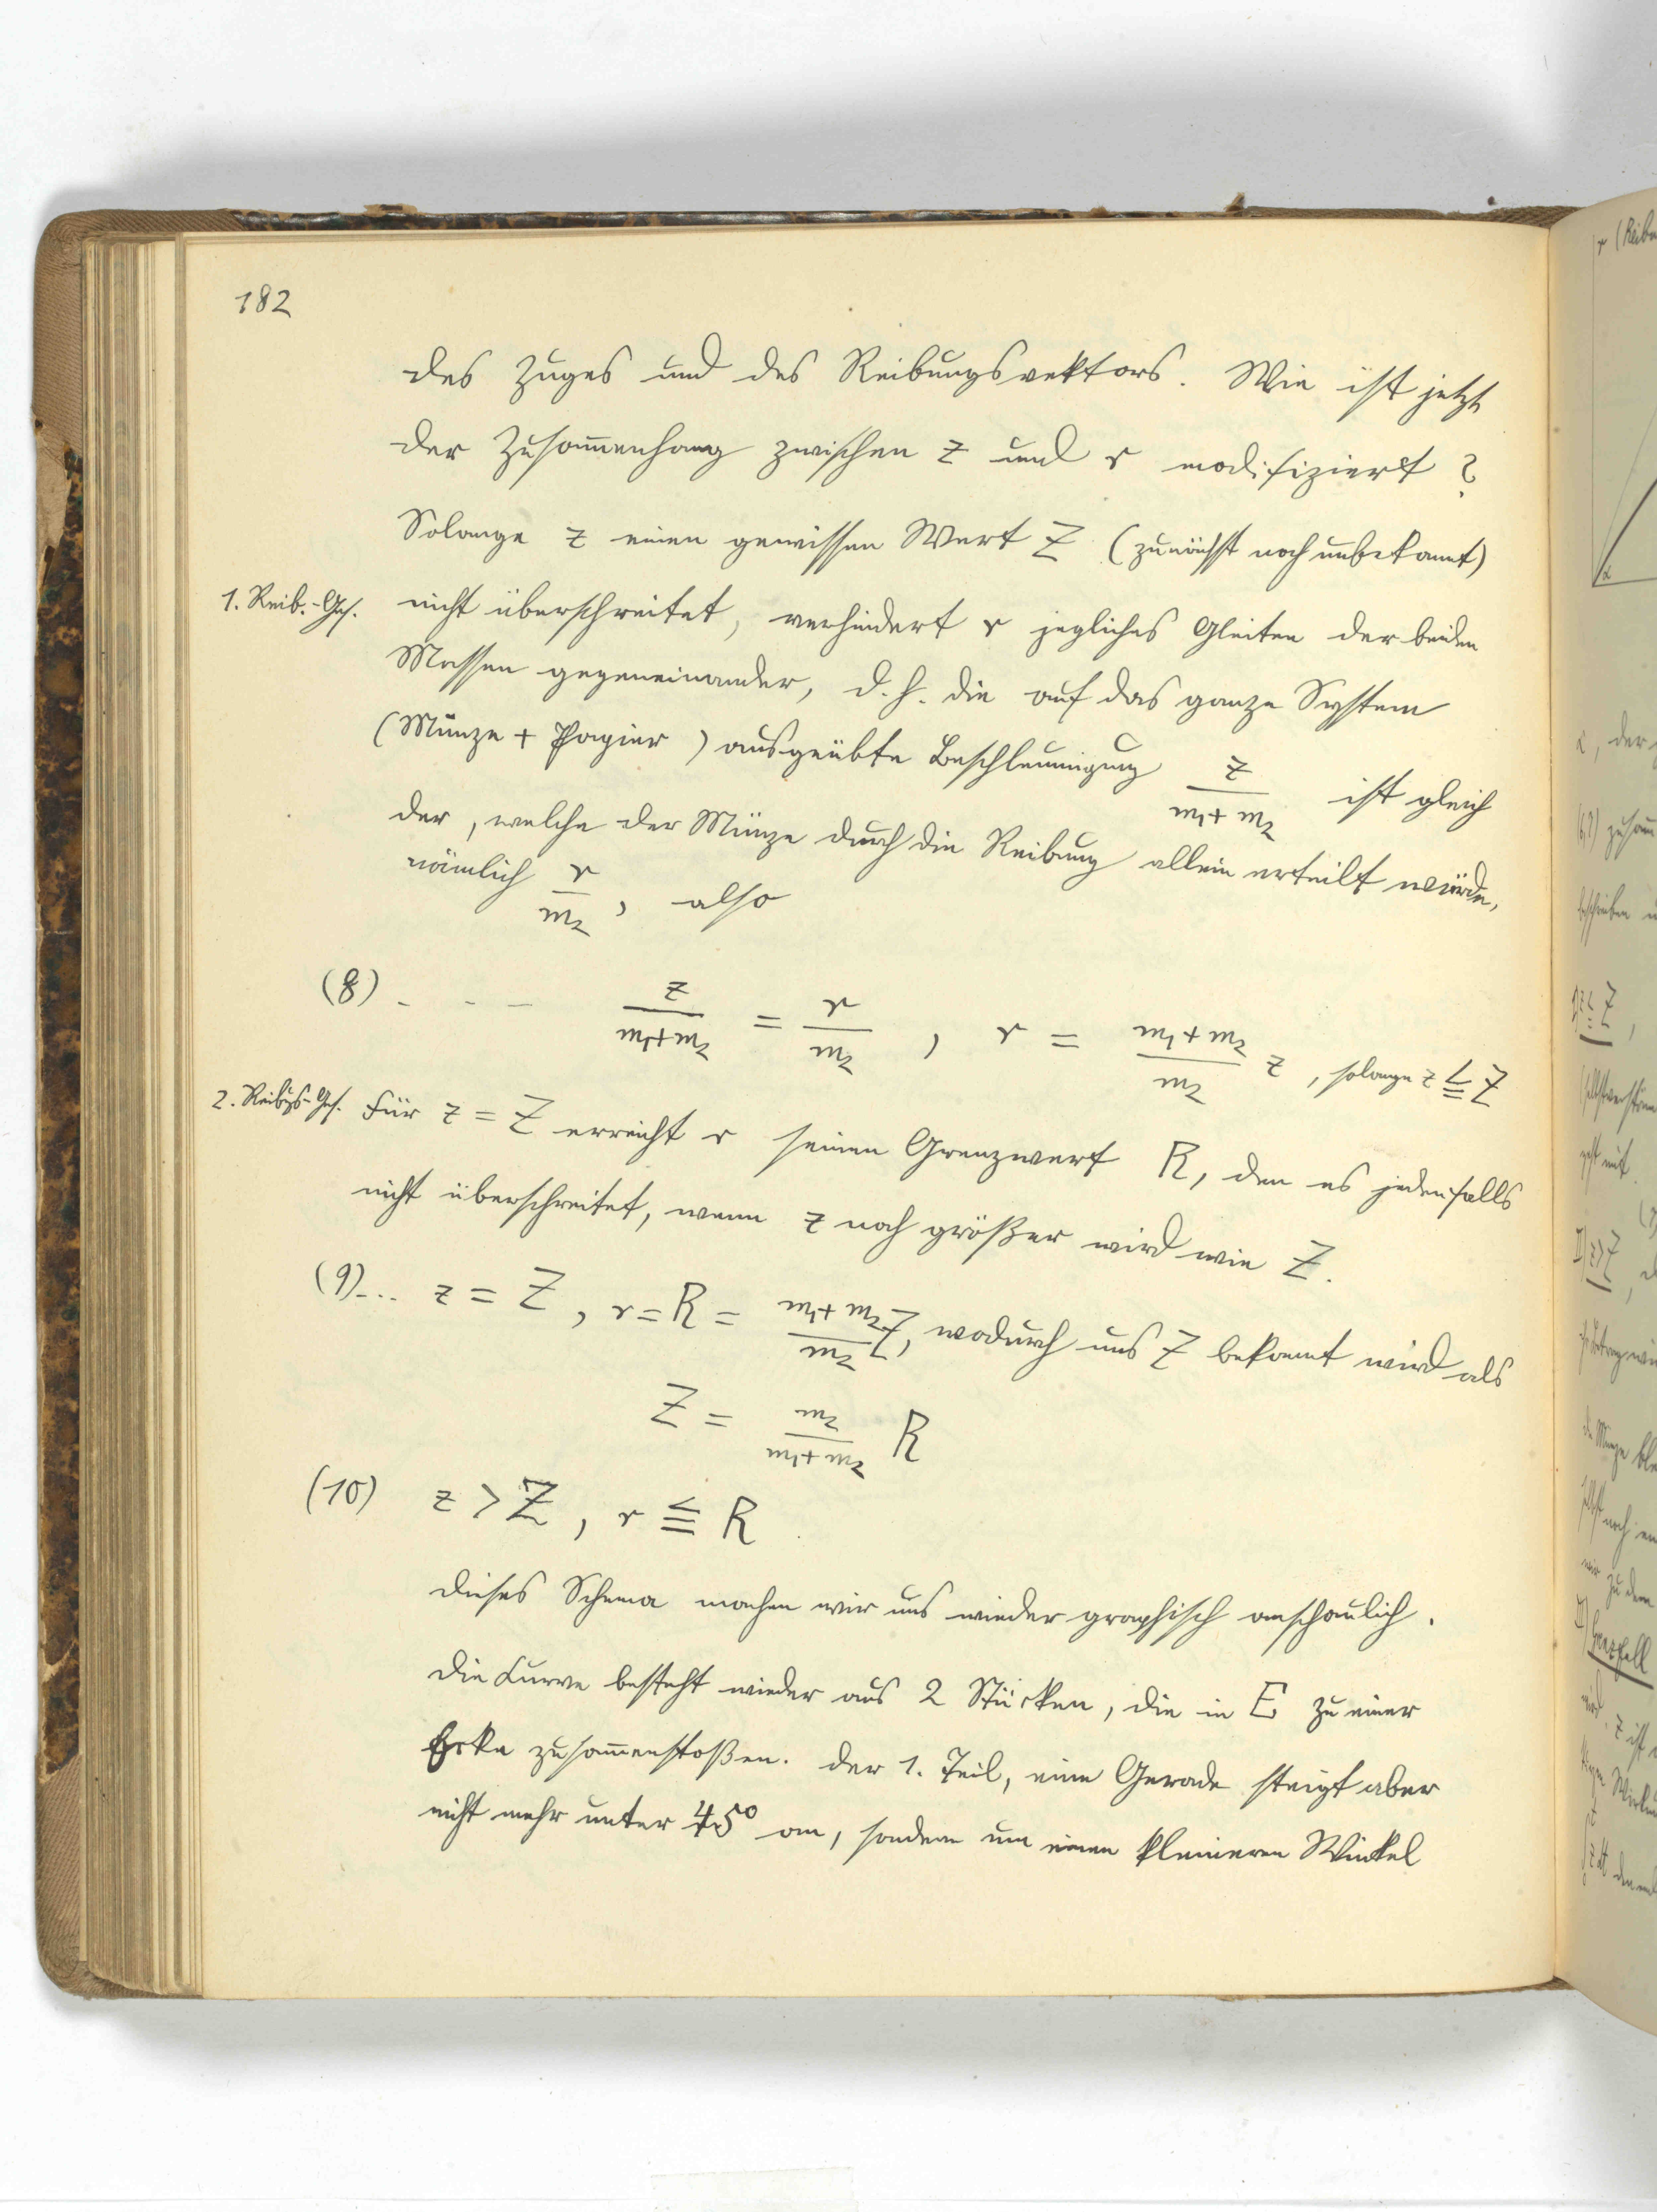 182
des Zuges und des Reibungsvektors. Wie ist jetzt
der Zusam̅enhang zwischen z und r modifiziert?
Solange z einen gewissen Wert Z (zunächst noch unbekannt)
1. Reib.-Ges. nicht überschreitet, verhindert r jegliches Gleiten der beiden
Massen gegeneinander, d.h. die auf das ganze System
(Münze + Papier) ausgeübte Beschleunigung z/(m₁+m₂) ist gleich
der, welche der Münze durch die Reibung allein erteilt würde,
nämlich r/m₂, also
(8) - - - z/(m₁+m₂) = r/m₂, r = (m₁+m₂)/m₂ z, solange z ≦ Z
2. Reibgs-Ges. Für z = Z erreicht r seinen Grenzwert R, den es jedenfalls
nicht überschreitet, wenn z noch größer wird wie Z.
(9)... z = Z, r = R = (m₁+m₂)/m₂ Z, wodurch uns Z bekannt wird als
Z = m₂/(m₁+m₂) R
(10) z > Z, r ≦ R
Dieses Schema machen wir uns wieder graphisch anschaulich.
Die Curve besteht wieder aus 2 Stücken, die in E zu einer
Ecke zusam̅enstoßen. Der 1. Teil, eine Gerade steigt aber
nicht mehr unter 45° an, sondern um einen kleineren Winkel